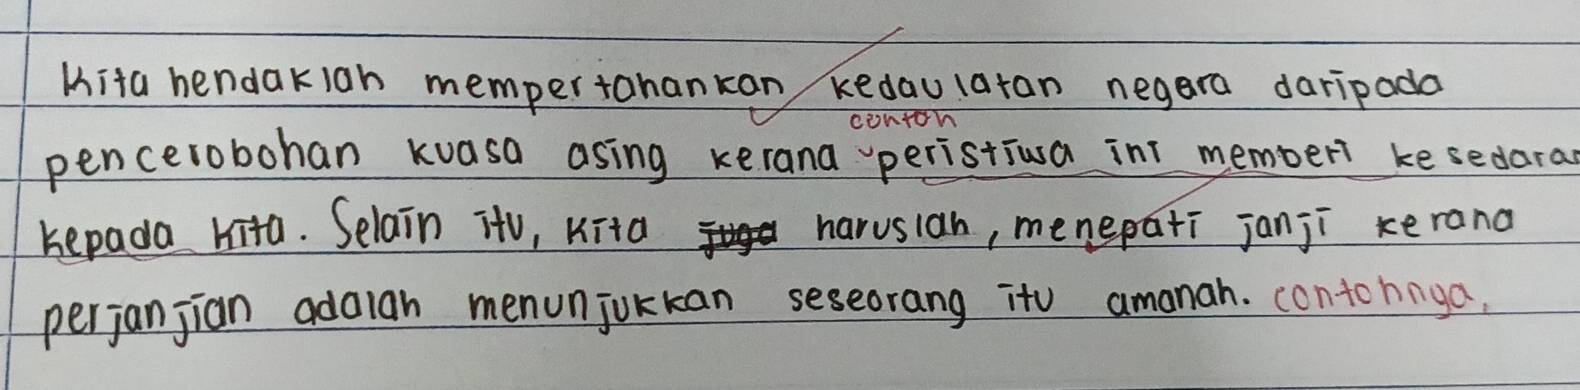 Kita hendaklah mempertahankan kedaulatan negara daripada
contoh
pencerobohan kuasa asing kerana peristiwa ini memberi kesedaran
kepada kita. Selain itu, kita juga haruslah, menepati janji kerana
perjanjian adalah menunjukkan seseorang itu amanah. contohnya,